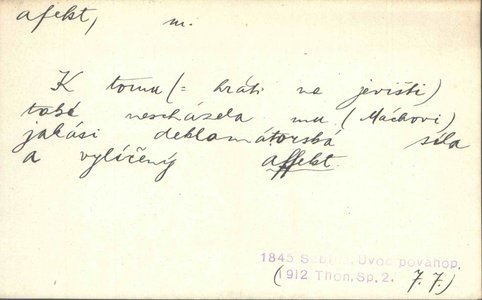 afekt, m.
K tomu (= hráti na jevišti)
také nescházela mu (Máchovi)
jakási deklamátorská síla
a vylíčený affekt.
1845 Úvod povahop.
(1912 Thon, Sp. 2. 7.7.)